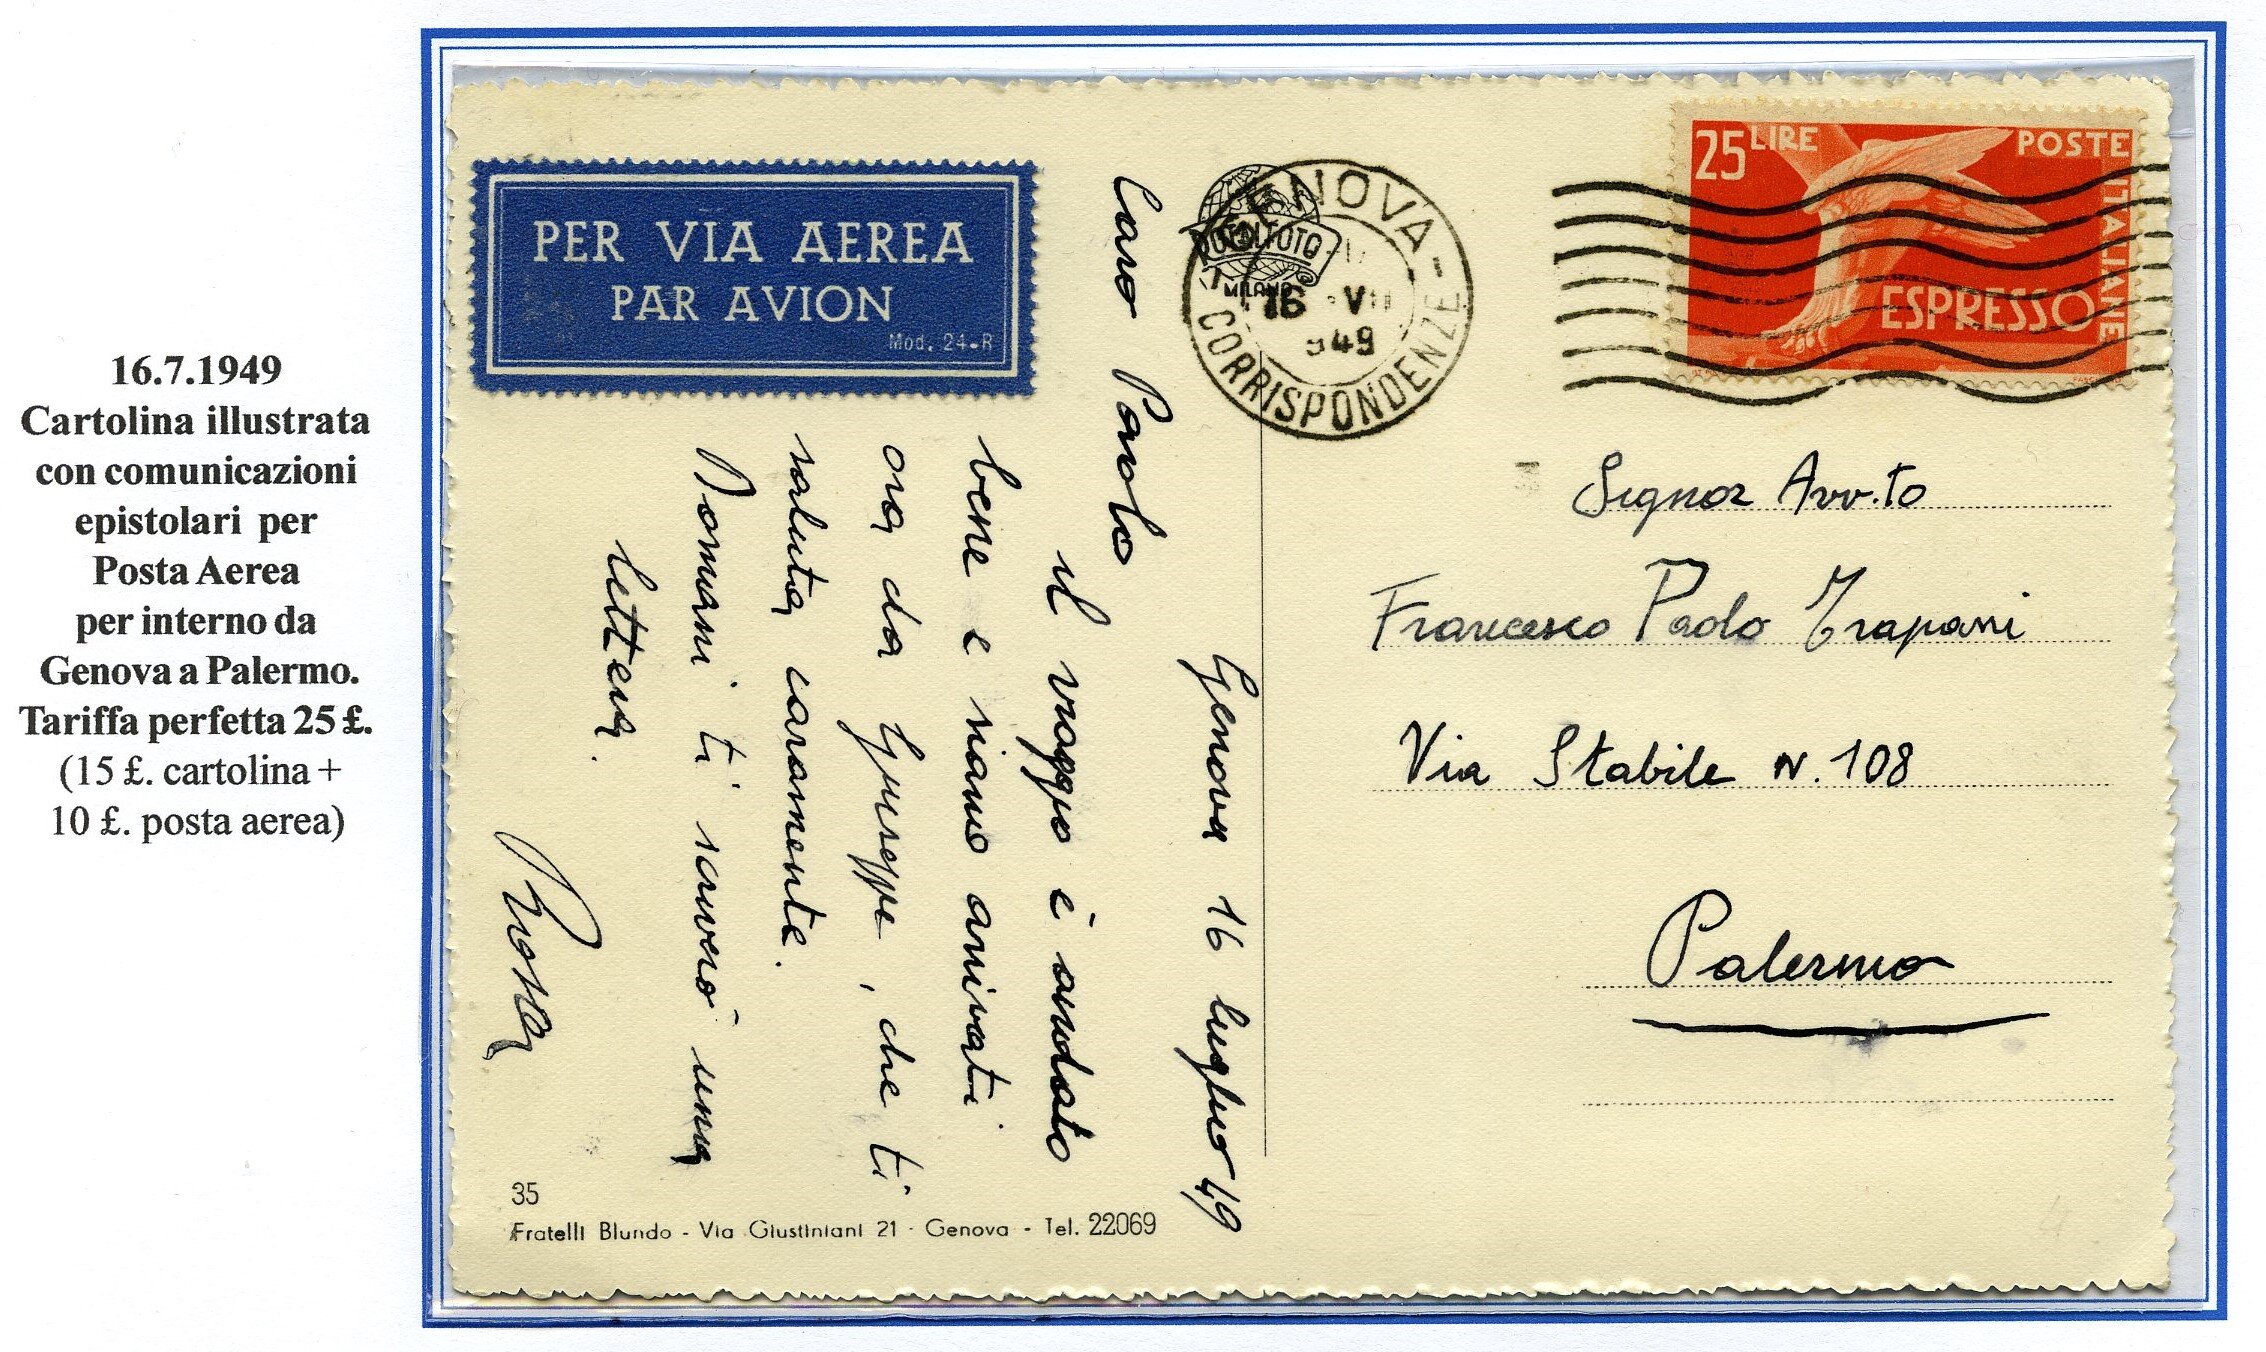 16.7.1949
Cartolina illustrata
con comunicazioni
epistolari per
Posta Aerea
per interno da
Genova a Palermo.
Tariffa perfetta 25 £.
(15 £. cartolina +
10 £. posta aerea)
PER VIA AEREA
PAR AVION
Mod. 24-R
Genova 16 luglio 49
Caro Paolo
il viaggio è andato
bene e siamo arrivati
ora da Giuseppe, che ti
saluta caramente.
Domani ti scriverò una
lettera.
35
Fratelli Blundo - Via Giustiniani 21 - Genova - Tel. 22069
TOTALFOTO
MILANO
GENOVA -
16 VII
949
CORRISPONDENZE
25 LIRE
POSTE
ITALIANE
ESPRESSO
Signor Avv.to
Francesco Paolo Trapani
Via Stabile N. 108
Palermo